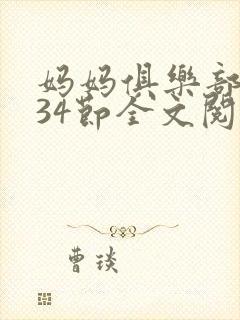 妈妈俱樂部
34節全文閱
曹琰